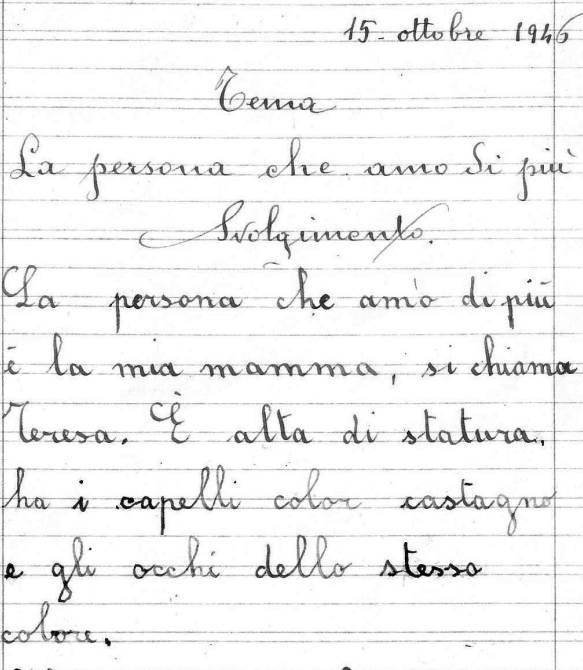 15 - ottobre 1946
Tema
La persona che amo di più
Svolgimento.
La persona che amo di più
è la mia mamma, si chiama
Teresa. È alta di statura,
ha i capelli color castagno
e gli occhi dello stesso
colore.